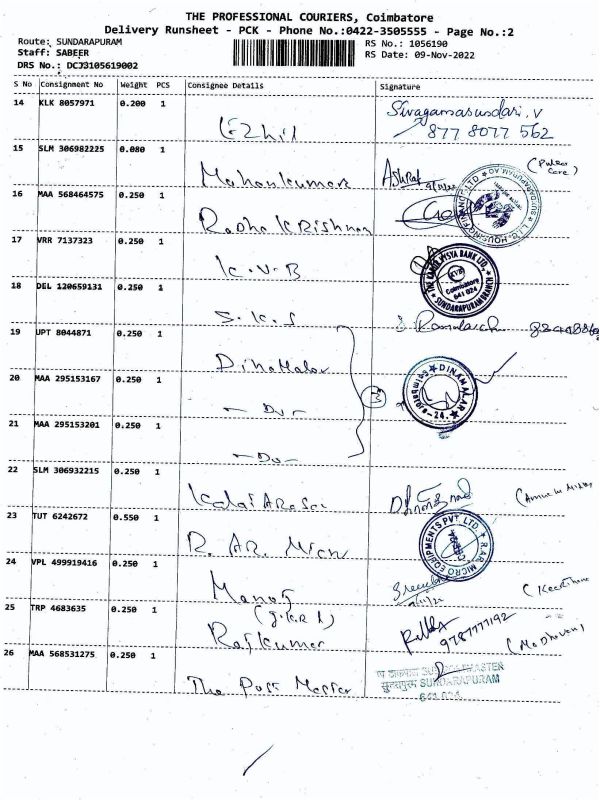 THE PROFESSIONAL COURIERS, Coimbatore
Delivery Runsheet - PCK - Phone No.:0422-3505555 - Page No.:2
Route: SUNDARAPURAM
RS No.: 1056190
Staff: SABEER
RS Date: 09-Nov-2022
DRS No.: DCJ3105619002
S No Consignment No Weight PCS Consignee Details Signature
14 KLK 8057971 0.200 1 Ezhil Sivagamasundari.V
877 8077 562
15 SLM 306982225 0.080 1 Mohankumar Ashraf
16 MAA 568464575 0.250 1 Radha Krishnan
L.I.C. HOUSING FINANCE LTD
17 VRR 7137323 0.250 1 K.V.B
THE KARUR VYSYA BANK LTD.
KVB
Coimbatore
641 024
SUNDARAPURAM BRANCH
18 DEL 120659131 0.250 1 S.K.S
19 UPT 8044871 0.250 1 Dinamalar
20 MAA 295153167 0.250 1 - Do - 3
DINAMALAR
Coimbatore - 24.
21 MAA 295153201 0.250 1 - Do -
22 SLM 306932215 0.250 1 KalaiArasi
23 TUT 6242672 0.550 1 R. AR. Micro
R.A.R. MICRO EQUIPMENTS PVT. LTD.
24 VPL 499919416 0.250 1 Manoj
25 TRP 4683635 0.250 1 Rajkumar
9787777192
26 MAA 568531275 0.250 1 The Post Master
SUB POSTMASTER
SUNDARAPURAM
641 024